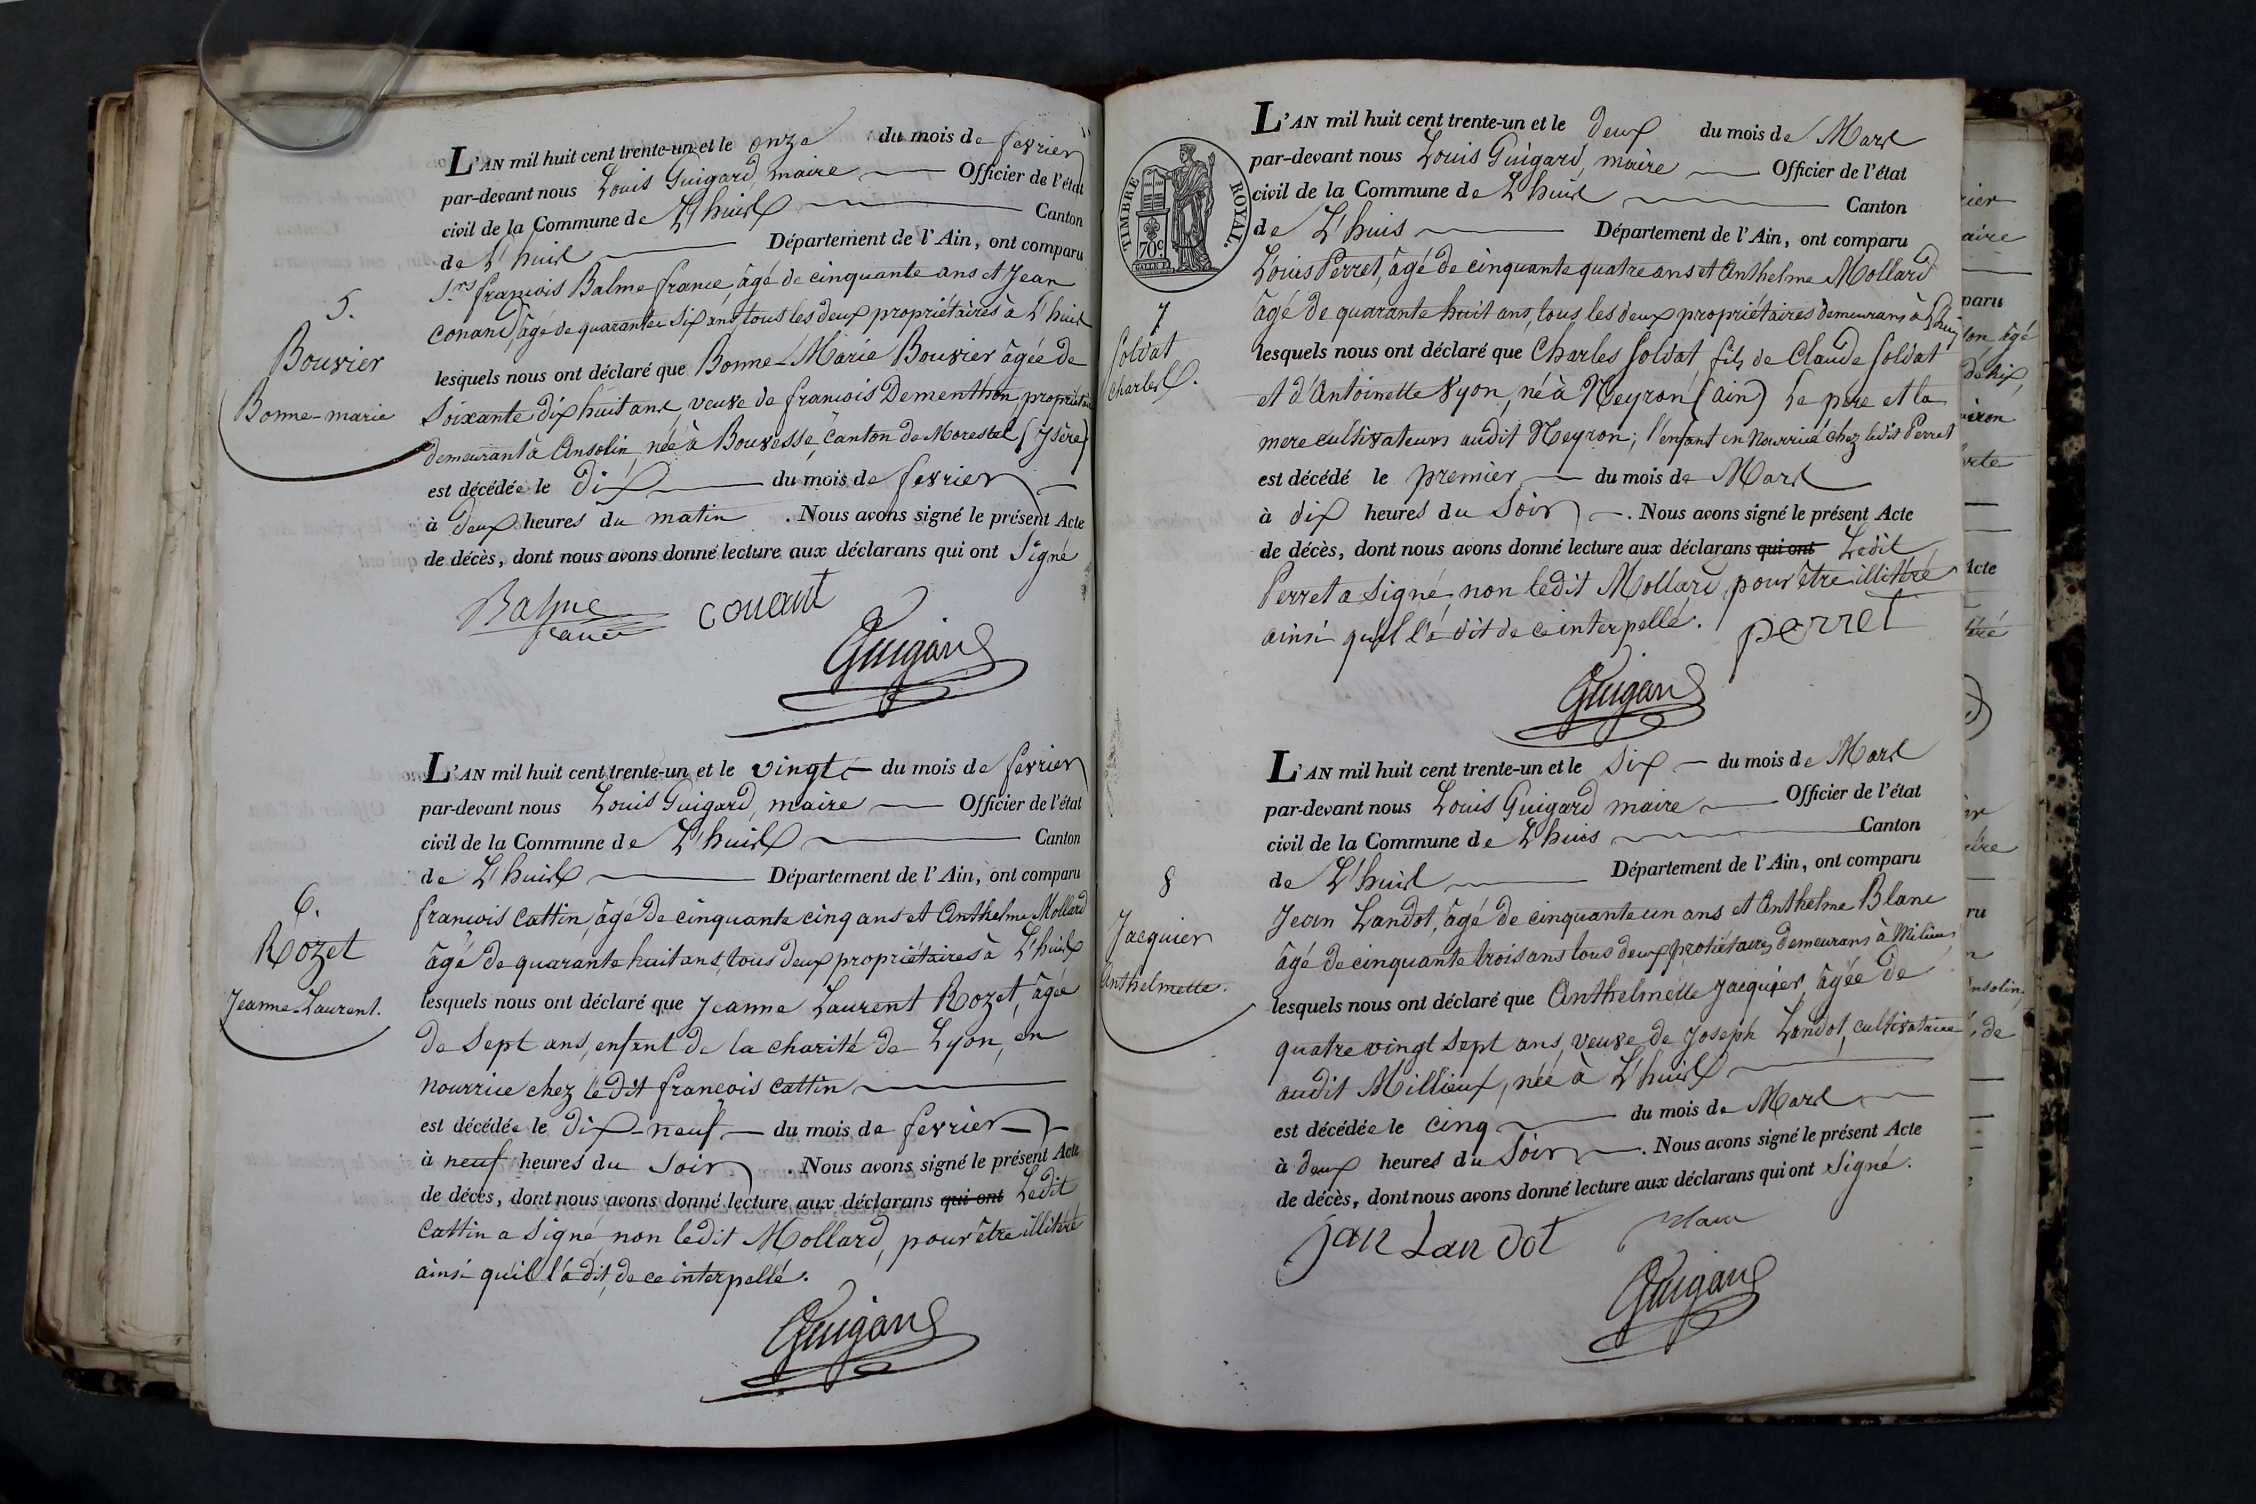 5.
Bouvier
Bonne-marie
L'AN mil huit cent trente-un et le onze du mois de fevrier
par-devant nous Louis Guigard maire Officier de l'état
civil de la Commune de L'huis Canton
de L'huis Département de l'Ain, ont comparu
Srs françois Balme france, âgé de cinquante ans et Jean
Conand, âgé de quarante six ans, tous les deux propriétaires à L'huis
lesquels nous ont déclaré que Bonne-Marie Bouvier âgée de
soixante dix huit ans, veuve de françois Dementhon, propriétaire
demeurant à Ansolin, née à Bouvesse, canton de Morestel (Isère)
est décédée le dix du mois de fevrier
à deux heures du matin. Nous avons signé le présent Acte
de décès, dont nous avons donné lecture aux déclarans qui ont signé
Balme conant
france
Guigard
6.
Rozet
Jeanne-Laurent.
L'AN mil huit cent trente-un et le vingt du mois de fevrier
par-devant nous Louis Guigard, maire Officier de l'état
civil de la Commune de L'huis Canton
de L'huis Département de l'Ain, ont comparu
françois Cattin, âgé de cinquante cinq ans et Anthelme Mollard
âgé de quarante huit ans, tous deux propriétaires à L'huis
lesquels nous ont déclaré que Jeanne Laurent Rozet, âgée
de sept ans, enfant de la charité de Lyon, en
nourrice chez ledit françois Cattin
est décédée le dix-neuf du mois de fevrier
à neuf heures du soir. Nous avons signé le présent Acte
de décès, dont nous avons donné lecture aux déclarans qui ont Ledit
Cattin a signé non ledit Mollard, pour être illitéré
ainsi qu'il l'a dit, de ce interpellé.
Guigard
TIMBRE ROYAL.
70c.
7
Soldat
Charles.
L'AN mil huit cent trente-un et le deux du mois de Mars
par-devant nous Louis Guigard, maire Officier de l'état
civil de la Commune de L'huis Canton
de L'huis Département de l'Ain, ont comparu
Louis Perret, âgé de cinquante quatre ans et Anthelme Mollard
âgé de quarante huit ans, tous les deux propriétaires demeurans à L'huis
lesquels nous ont déclaré que Charles Soldat, fils de Claude Soldat
et d'Antoinette Vyon, né à Neyron (ain) Le pere et la
mere cultivateurs audit Neyron; l'enfant en nourrice chez ledit Perret
est décédé le premier du mois de Mars
à dix heures du soir. Nous avons signé le présent Acte
de décès, dont nous avons donné lecture aux déclarans qui ont Ledit
Perret a signé, non ledit Mollard pour être illitéré
ainsi qu'il l'a dit de ce interpellé. perret
Guigard
8
Jacquier
Anthelmette.
L'AN mil huit cent trente-un et le six du mois de Mars
par-devant nous Louis Guigard maire Officier de l'état
civil de la Commune de L'huis Canton
de L'huis Département de l'Ain, ont comparu
Jean Landot, âgé de cinquante un ans et Anthelme Blanc
âgé de cinquante trois ans tous deux protiétaires demeurans à Milieux
lesquels nous ont déclaré que Anthelmette Jacquier âgée de
quatre vingt sept ans, veuve de Joseph Landot, cultivatrice
audit Millieux, née à L'huis
est décédée le cinq du mois de Mars
à deux heures du soir. Nous avons signé le présent Acte
de décès, dont nous avons donné lecture aux déclarans qui ont signé.
jan Landot
Guigard